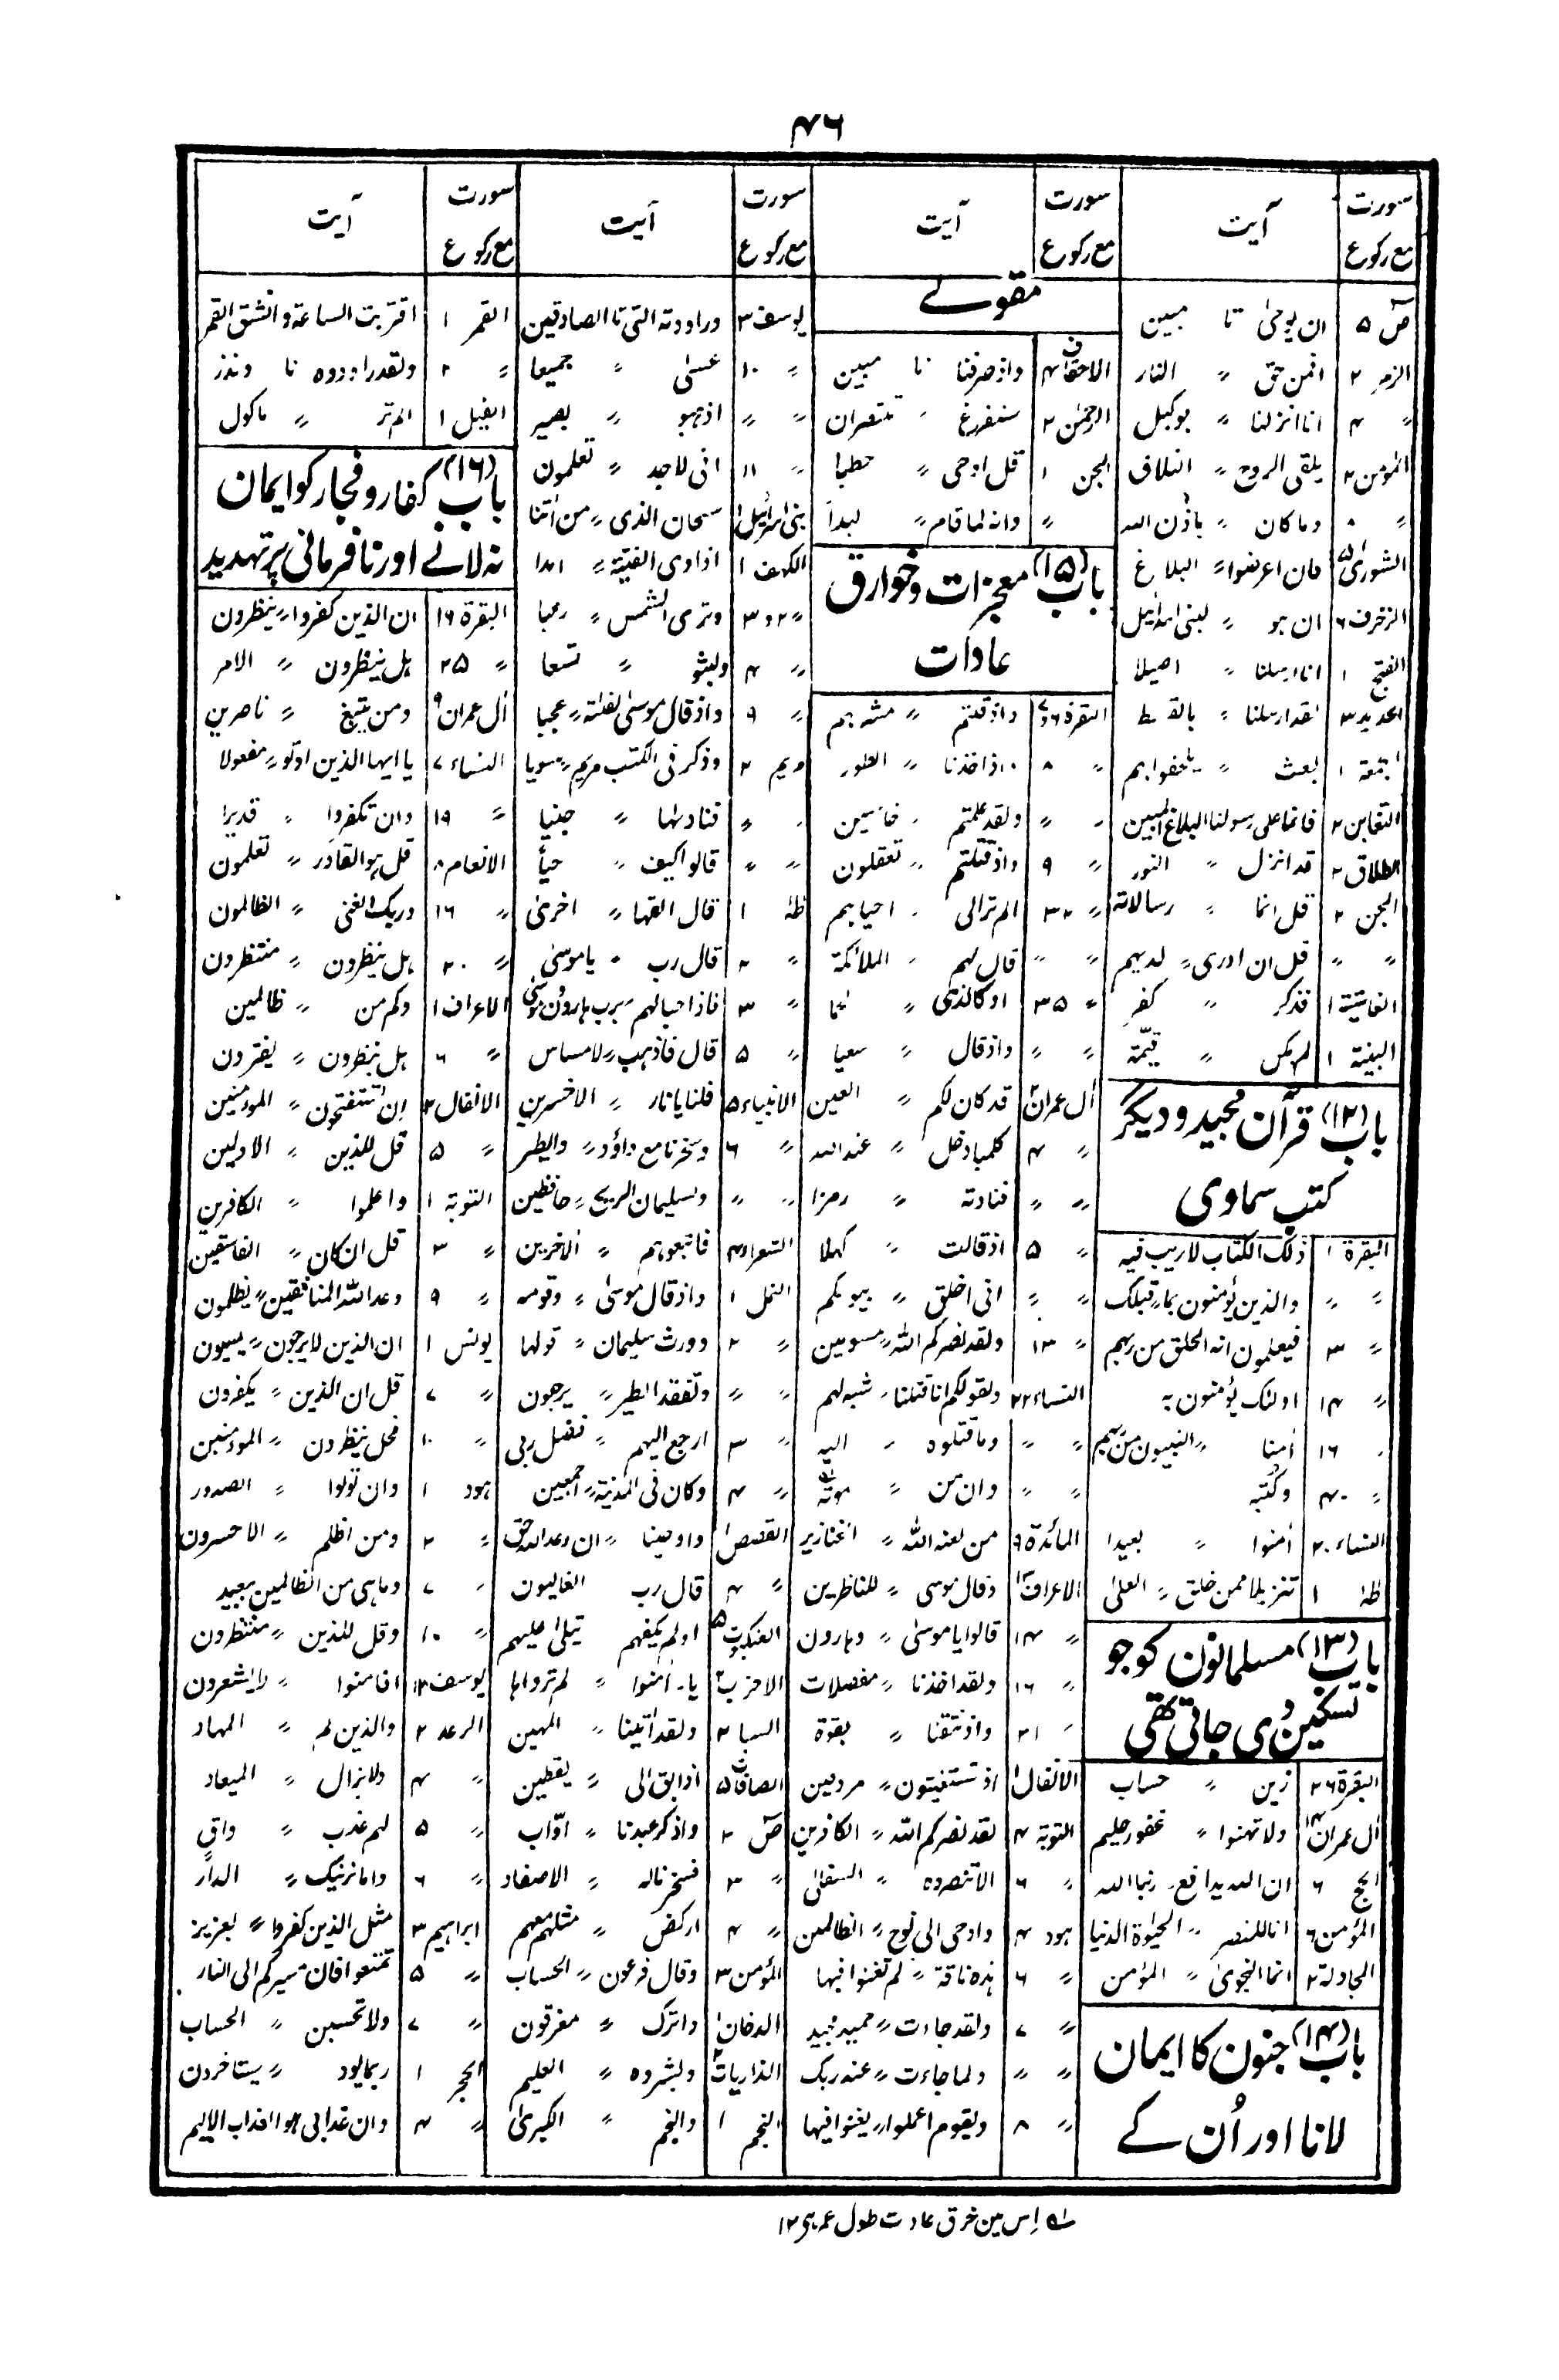 ۴۶
سورت مع رکوع آیت
ص ۵ ان یوحیٰ تا مبین
الزمر ۲ افمن حق 〃 النار
〃 ۴ انا انزلنا 〃 بوکیل
المؤمن ۲ یلقی الروح 〃 التلاق
〃 ۸ وما کان 〃 باذن اللہ
الشوریٰ ۵ فان اعرضوا 〃 البلاغ
الزخرف ۶ ان ہو 〃 لبنی اسرائیل
الفتح ۱ انا ارسلنا 〃 اصیلا
الحدید ۳ لقد ارسلنا 〃 بالقسط
الجمعۃ ۱ بعث 〃 یلحقوا بہم
التغابن ۲ فانما علی رسولنا البلاغ المبین
الطلاق ۲ قد انزل 〃 النور
الجن ۲ قل انما 〃 رسالاتہ
〃 〃 قل ان ادری 〃 لدیہم
الغاشیۃ ۱ فذکر 〃 کفر
البینۃ ۱ لم یکن 〃 قیّمۃ
باب (۱۲) قرآن مجید و دیگر
کتب سماوی
البقرۃ ۱ ذلک الکتاب لاریب فیہ
〃 〃 والذین یؤمنون بما 〃 قبلک
〃 ۳ فیعلمون انہ الحق من ربہم
〃 ۱۴ اولئک یؤمنون بہ
〃 ۱۶ اٰمنا 〃 النبیون من ربہم
〃 ۴۰ وکتبہ
النساء ۲۰ اٰمنوا 〃 بعیدا
طہٰ ۱ تنزیلا ممن خلق 〃 العلیٰ
باب (۱۳) مسلمانون کو جو
تسکین دی جاتی تھی
البقرۃ ۲۶ زین 〃 حساب
اٰل عمران ۱۴ ولا تہنوا 〃 غفور حلیم
الحج ۶ ان اللہ یدافع 〃 ربنا اللہ
المؤمن ۶ انا لننصر 〃 الحیٰوۃ الدنیا
المجادلۃ ۲ انما النجویٰ 〃 المؤمن
باب (۱۴) جنون کا ایمان
لانا اور اُن کے
سورت مع رکوع آیت
مقولے
الاحقاف ۴ واذ صرفنا تا مبین
الرحمٰن ۲ سنفرغ 〃 تنتصران
الجن ۱ قل اوحی 〃 حطبا
〃 وانہ لما قام 〃 لبدا
باب (۱۵) معجزات و خوارق
عادات
البقرۃ ۶و۷ واذ قلتم 〃 مشربہم
〃 ۸ واذ اخذنا 〃 الطور
〃 〃 ولقد علمتم 〃 خاسئین
〃 ۹ واذ قتلتم 〃 تعقلون
〃 ۳۲ الم تر الی 〃 احیاہم
〃 〃 قال لہم 〃 الملائکۃ
〃 ۳۵ او کالذی 〃
〃 〃 واذ قال 〃 سعیا
اٰل عمران ۲ قد کان لکم 〃 العین
〃 ۴ کلما دخل 〃 عند اللہ
〃 〃 فنادتہ 〃 رمزا
〃 ۵ اذ قالت 〃 کہلا
〃 〃 انی اخلق 〃 بیوتکم
〃 ۱۳ ولقد نصرکم اللہ 〃 مسومین
النساء ۲۲ وقولہم انا قتلنا 〃 شبہ لہم
〃 〃 وما قتلوہ 〃 الیہ
〃 〃 وان من 〃 موتہ
المائدۃ ۹ من لعنہ اللہ 〃 الخنازیر
الاعراف ۱۳ وقال موسی 〃 للناظرین
〃 ۱۴ قالوا یا موسیٰ 〃 وہارون
〃 ۱۶ ولقد اخذنا 〃 مفصلات
〃 ۲۱ واذ نتقنا 〃 بقوۃ
الانفال ۱ اذ تستغیثون 〃 مردفین
التوبۃ ۴ لقد نصرکم اللہ 〃 الکافرین
〃 ۶ الا تنصروہ 〃 السفلیٰ
ہود ۴ واوحی الی نوح 〃 الظالمین
〃 ۶ ہذہ ناقۃ 〃 لم یغنوا فیہا
〃 ۷ ولقد جاءت 〃 حمید مجید
〃 〃 ولما جاءت 〃 عند ربک
〃 ۸ ویقوم اعملوا 〃 یغنوا فیہا
سورت مع رکوع آیت
یوسف ۳ وراودتہ التی تا الصادقین
〃 ۱۰ عسیٰ 〃 جمیعا
〃 〃 اذہبو 〃 بصیر
〃 ۱۱ انی لاجد 〃 تعلمون
بنی اسرائیل ۱ سبحان الذی 〃 من اٰیٰتنا
الکہف ۱ اذ اوی الفتیۃ 〃 امدا
〃 ۲و۳ وتری الشمس 〃 رعبا
〃 ۴ ولبثو 〃 تسعا
〃 ۹ واذ قال موسیٰ لفتٰہ 〃 عجبا
مریم ۲ وذکر فی الکتٰب مریم 〃 سویا
〃 〃 فنادٰیہا 〃 جنیا
〃 〃 قالوا کیف 〃 حیاً
طہٰ ۱ قال القہا 〃 اخریٰ
〃 ۲ قال رب 〃 یا موسیٰ
〃 ۳ فاذا حبالہم 〃 برب ہارون و موسیٰ
〃 ۵ قال فاذہب 〃 لا مساس
الانبیاء ۵ قلنا یا نار 〃 الاخسرین
〃 ۶ وسخرنا مع داؤد 〃 والطیر
〃 〃 ولسلیمان الریح 〃 حافظین
الشعراء ۴ فاتبعوہم 〃 الاٰخرین
النمل ۱ واذ قال موسیٰ 〃 وقومہ
〃 ۲ وورث سلیمان 〃 قولہا
〃 〃 وتفقد الطیر 〃 یرجعون
〃 ۳ ارجع الیہم 〃 فضل ربی
〃 ۴ وکان فی المدینۃ 〃 اجمعین
القصص ۱ واوحینا 〃 ان وعد اللہ حق
〃 ۴ قال رب الغالبون
العنکبوت ۵ اولم یکفہم یتلیٰ علیہم
الاحزاب ۲ یا 〃 اٰمنوا 〃 لم تروہا
السبا ۲ ولقد اٰتینا 〃 المہین
الصافات ۵ اذ ابق الی 〃 یقطین
صٓ ۲ واذکر عبدنا 〃 اوّاب
〃 ۳ فسخرنا لہ 〃 الاصفاد
〃 ۴ ارکض 〃 مثلہم معہم
المؤمن ۳ وقال فرعون 〃 الحساب
الدخان ۱ واترک 〃 مغرقون
الذاریات ۲ وبشروہ 〃 العلیم
النجم ۱ والنجم 〃 الکبریٰ
سورت مع رکوع آیت
القمر ۱ اقتربت الساعۃ وانشق القمر
〃 ۲ ولقد راودوہ تا ونذر
الفیل ۱ الم تر 〃 ماکول
باب (۱۶) کفار و فجار کو ایمان
نہ لانے اور نافرمانی پر تہدید
البقرۃ ۱۶ ان الذین کفروا 〃 ینظرون
〃 ۲۵ ہل ینظرون 〃 الامر
اٰل عمران ۹ ومن یبتغ 〃 ناصرین
النساء ۷ یا ایہا الذین اوتو 〃 مفعولا
〃 ۱۹ وان تکفروا 〃 قدیرا
الانعام ۸ قل ہو القادر 〃 تعلمون
〃 ۱۶ وربک الغنی 〃 الظالمون
〃 ۲۰ ہل ینظرون 〃 منتظرون
الاعراف ۱ وکم من 〃 ظالمین
〃 ۶ ہل ینظرون 〃 یفترون
الانفال ۲ ان تستفتحون 〃 المومنین
〃 ۵ قل للذین 〃 الاولین
التوبۃ ۱ واعلموا 〃 الکافرین
〃 ۳ قل ان کان 〃 الفاسقین
〃 ۹ وعد اللہ المنافقین 〃 یظلمون
یونس ۱ ان الذین لا یرجون 〃 یکسبون
〃 ۷ قل ان الذین 〃 یکفرون
〃 ۱۰ فہل ینظرون 〃 المومنین
ہود ۱ وان تولوا 〃 الصدور
〃 ۲ ومن اظلم 〃 الاخسرون
〃 ۷ وما ہی من الظالمین ببعید
〃 ۱۰ وقل للذین 〃 منتظرون
یوسف ۱۲ افامنوا 〃 لا یشعرون
الرعد ۲ والذین لم 〃 المہاد
〃 ۴ ولا یزال 〃 المیعاد
〃 ۵ لہم عذب 〃 واقٍ
〃 ۶ واما نرینک 〃 الدار
ابراہیم ۳ مثل الذین کفروا 〃 بعزیز
〃 ۵ تمتعوا فان مصیرکم الی النار
〃 ۷ ولا تحسبن 〃 الحساب
الحجر ۱ ربما یود 〃 یستاخرون
〃 ۴ وان عذابی ہو العذاب الالیم
لہ اِس مین خرق عادت طول عمر ہی ۱۲